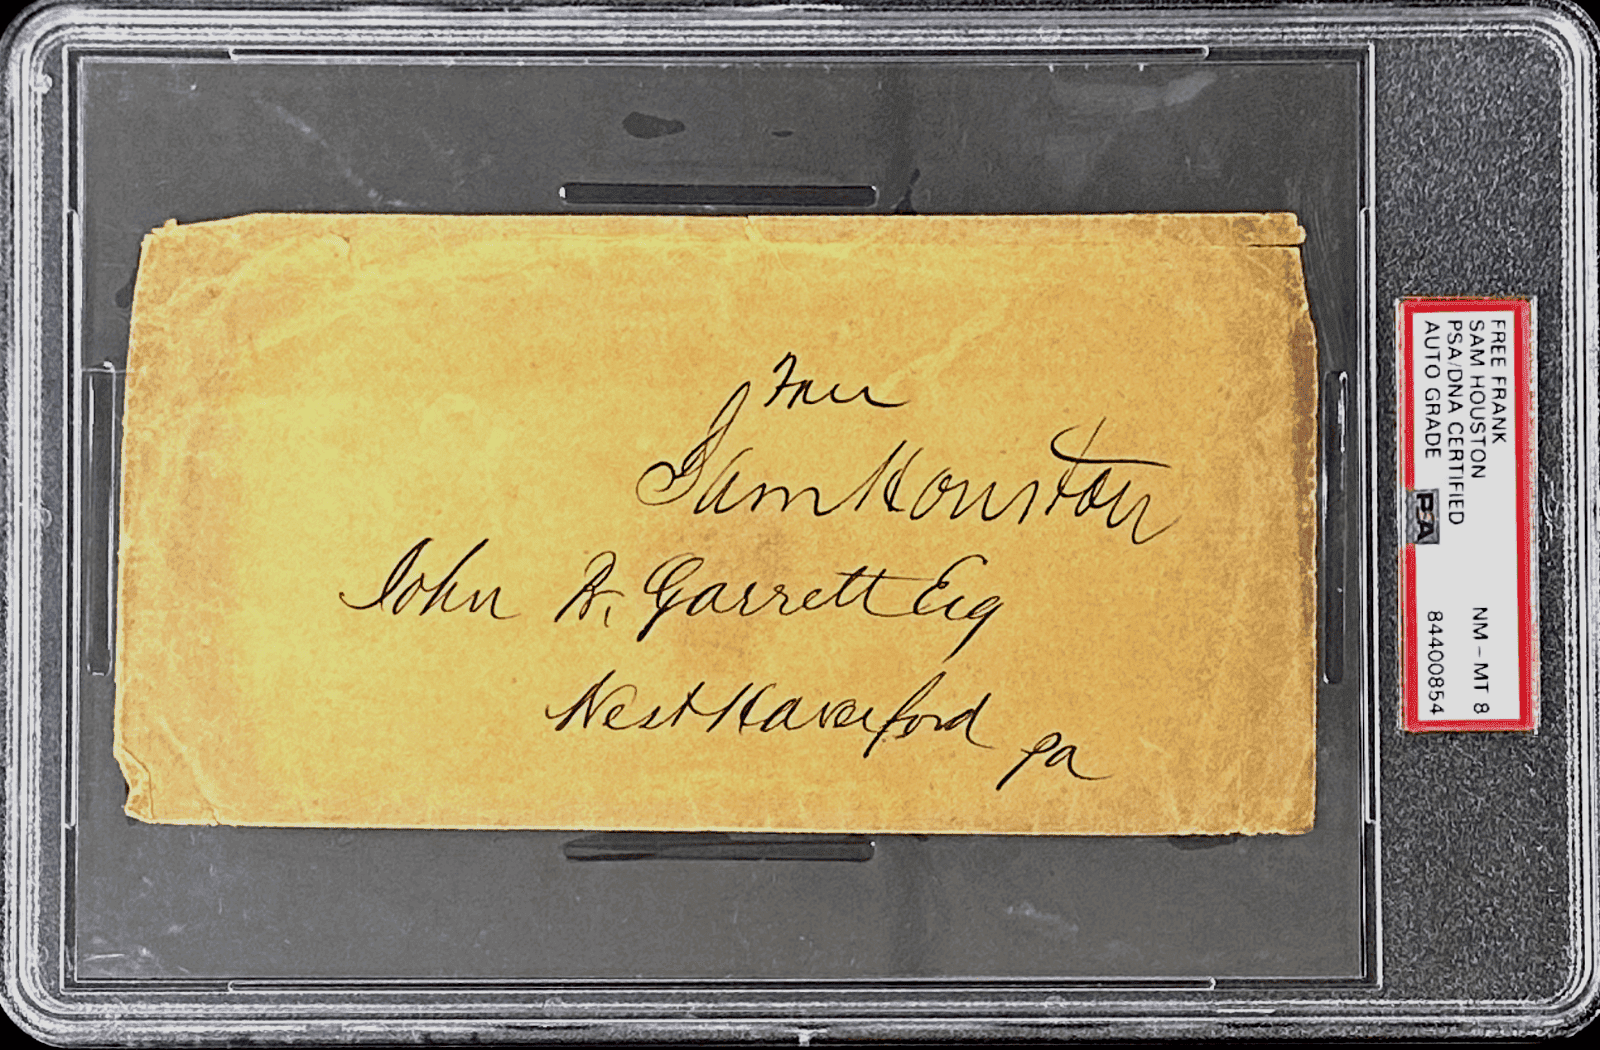 Free
Sam Houston
John B. Garrett Esq
West Haverford
Pa
FREE FRANK
SAM HOUSTON
PSA/DNA CERTIFIED
AUTO GRADE
NM - MT 8
84400854
PSA